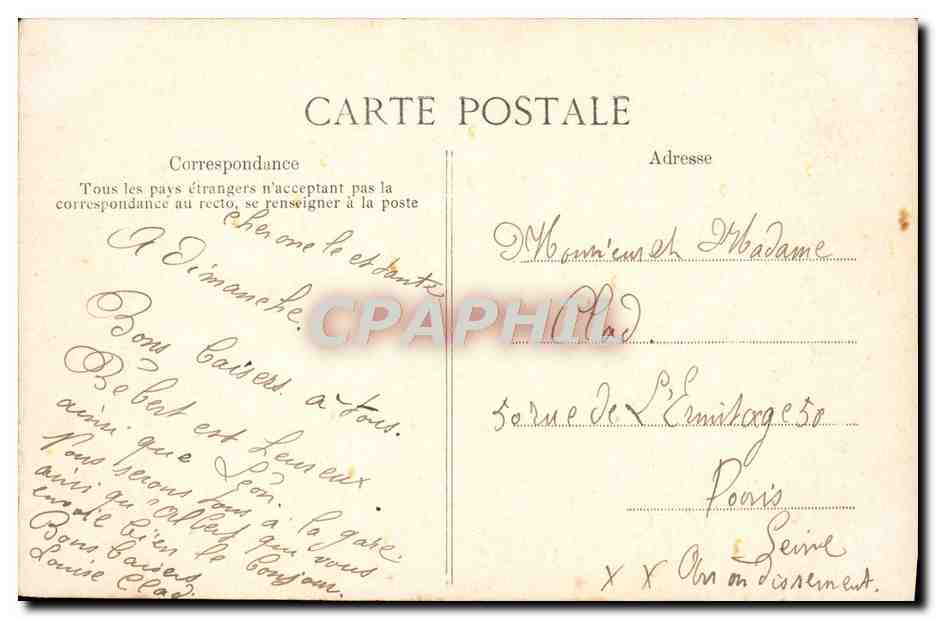 CARTE POSTALE
Correspondance
Tous les pays étrangers n'acceptant pas la
correspondance au recto, se renseigner à la poste
cher oncle et tante
A Dimanche.
Bons baisers. à tous.
Bébert est heureux
ainsi que Léon.
Nous serons tous à la gare.
ainsi qu'Albert qui vous
envoie bien le bonjour.
Bons baisers
Louise Clad.
Adresse
Monsieur et Madame
Clad.
50 rue de L'Ermitage 50
Paris
Seine
X X Arrondissement.
CPAPHIL